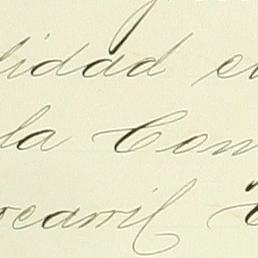 lidad e
la Com
rcarril